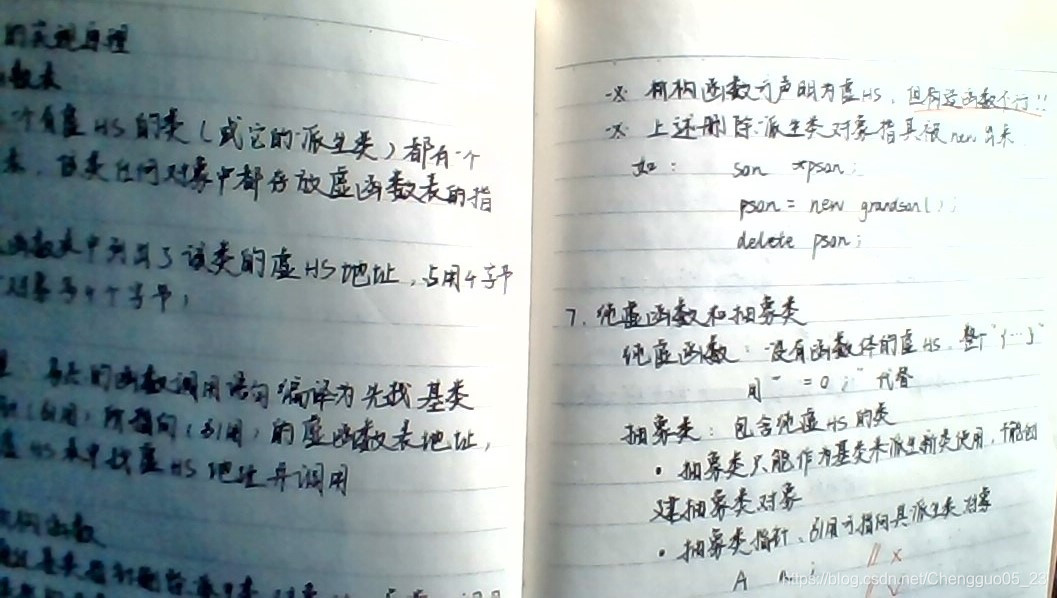 的实现原理
数表
个有虚HS的类(或它的派生类)都有一个
表,该类任何对象中都存放虚函数表的指
函数表中列出了该类的虚HS地址,占用4字节
对象多4个字节;
的函数调用语句编译为先找基类
(引用)所指向(引用)的虚函数表地址,
虚HS表中找虚HS地址并调用
析构函数
※ 析构函数可声明为虚HS,但构造函数不行!!
※ 上述删除派生类对象指其被new出来
如: son *pson;
pson = new grandson();
delete pson;
7. 纯虚函数和抽象类
纯虚函数:没有函数体的虚HS,整个"{…}"
用" =0;"代替
抽象类:包含纯虚HS的类
• 抽象类只能作为基类来派生新类使用,不能创
建抽象类对象
• 抽象类指针、引用可指向其派生类对象
A
https://blog.csdn.net/Chengguo05_23